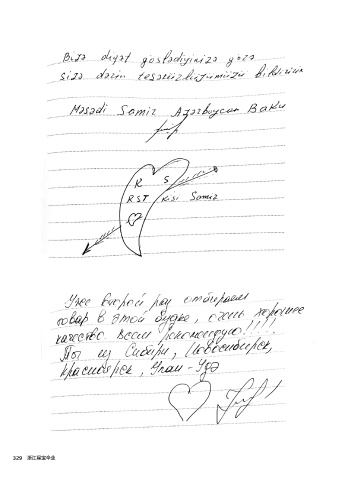 Bizə diqət göstədiyinizə görə
sizə dərin təşəkürlərümüzü bildiririk
Məşədi Samiz Azərbaycan Baku
R S
RST Kisi Samiz
Уже второй раз отбираем
товар в этой будке, очень хорошее
качество всем рекомендую!!!!
Мы из Сибири, Новосибирск,
Красноярск, Улан-Удэ
329 浙江屐宝伞业